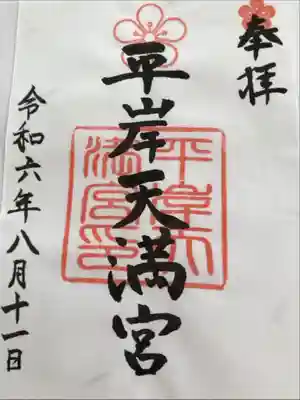 奉拝
平岸天満宮
平岸天満宮印
令和六年八月十一日